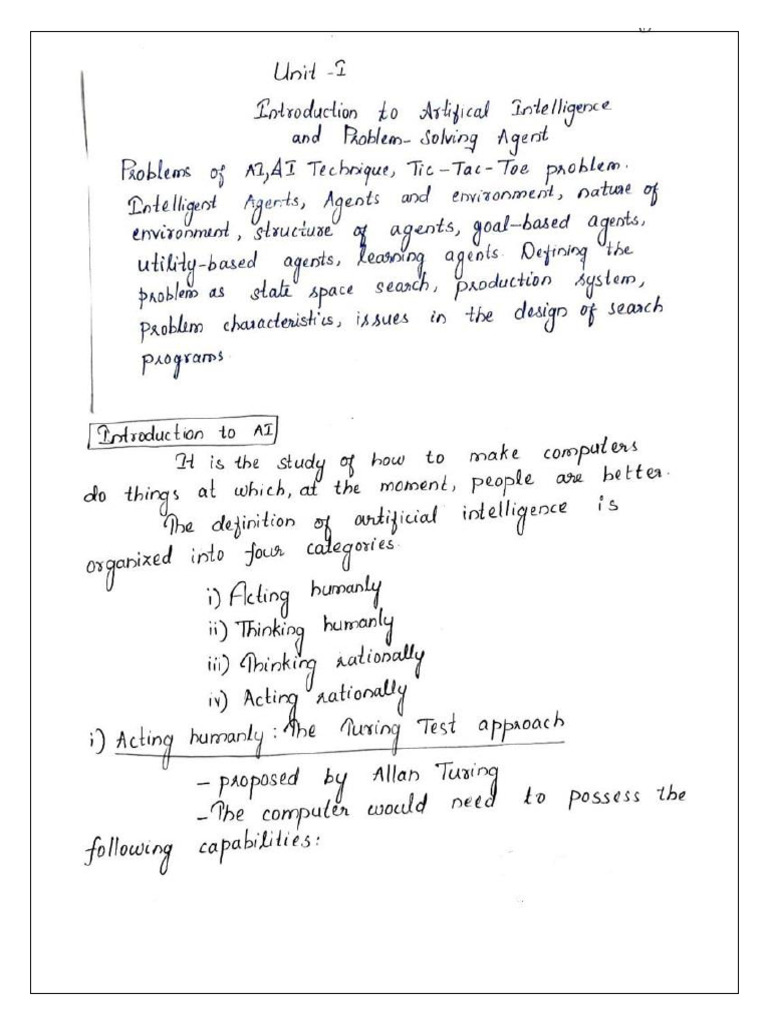 Unit - I
Introduction to Artifical Intelligence
and Problem-Solving Agent
Problems of AI, AI Technique, Tic-Tac-Toe problem.
Intelligent Agents, Agents and environment, nature of
environment, structure of agents, goal-based agents,
utility-based agents, learning agents. Defining the
problem as state space search, production system,
problem characteristics, issues in the design of search
programs.
Introduction to AI
It is the study of how to make computers
do things at which, at the moment, people are better.
The definition of artificial intelligence is
organized into four categories.
i) Acting humanly
ii) Thinking humanly
iii) Thinking rationally
iv) Acting rationally
i) Acting humanly : The Turing Test approach
- proposed by Allan Turing
- The computer would need to possess the
following capabilities: